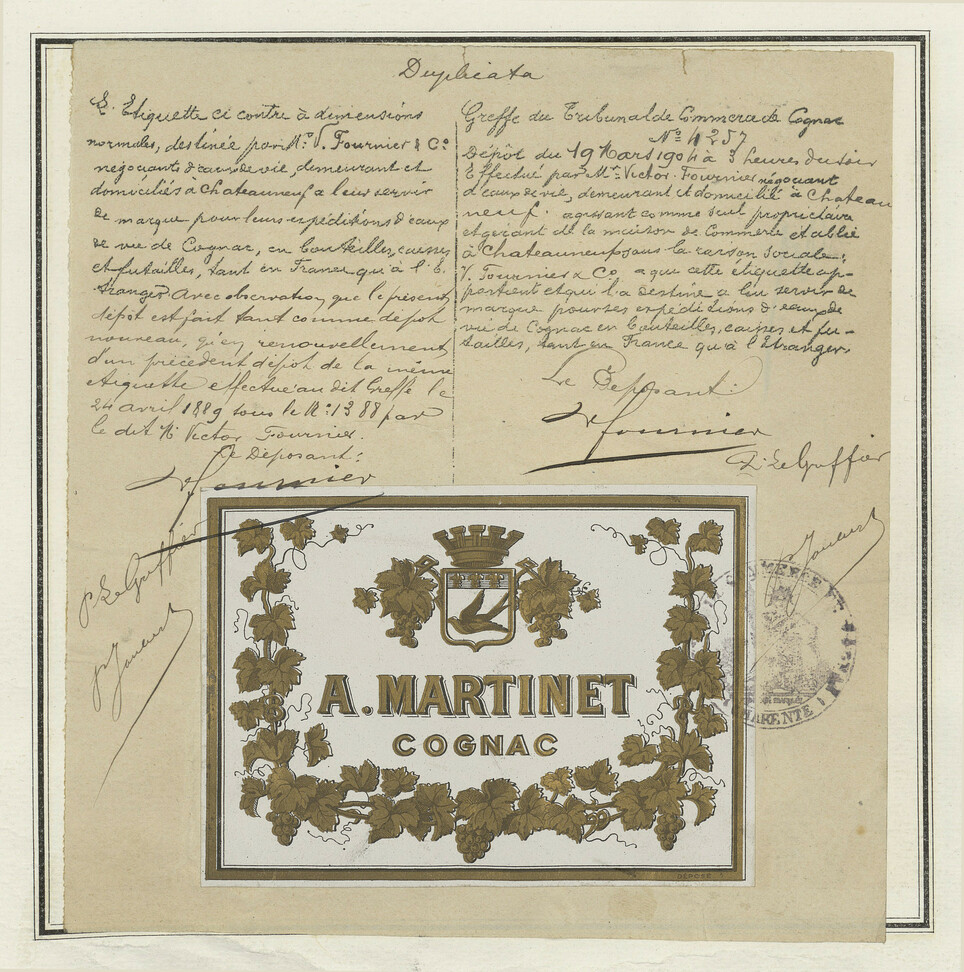 Duplicata
L'Etiquette ci contre à dimensions
normales, destinée par Mr. V. Fournier & Co
négociants d'eaux de vie, demeurant et
domiciliés à Chateauneuf a leur servir
de marque pour leurs expéditions d'eaux
de vie de Cognac, en bouteilles, caisses
et futailles, tant en France qu'à l'é-
tranger. Avec observation, que le présent
dépôt est fait tant comme dépôt
nouveau, qu'en renouvellement
d'un précédent dépôt de la même
étiquette effectué au dit Greffe le
24 avril 1889 sous le No: 1388 par
le dit Mr Victor Fournier.
Le Déposant:
V Fournier
p. Le Greffier
Greffe du Tribunal de Commerce de Cognac
No 4257
Dépôt du 19 Mars 1904 à 3 heures du soir
Effectué par Mr. Victor Fournier négociant
d'eaux de vie, demeurant et domicilié à Chateau
neuf. agissant comme seul propriétaire
et gérant de la maison de Commerce établie
à Chateauneuf sous la raison sociale:
V. Fournier & Co, a qui cette étiquette ap-
partient et qui l'a destine a leur servir de
marque pour ses expéditions d'eaux de
vie de Cognac en bouteilles, caisses et fu-
tailles, tant en France qu'à l'Etranger.
Le Déposant:
V Fournier
p. Le Greffier
A. MARTINET
COGNAC
DÉPOSÉ
COMMERCE
CHARENTE